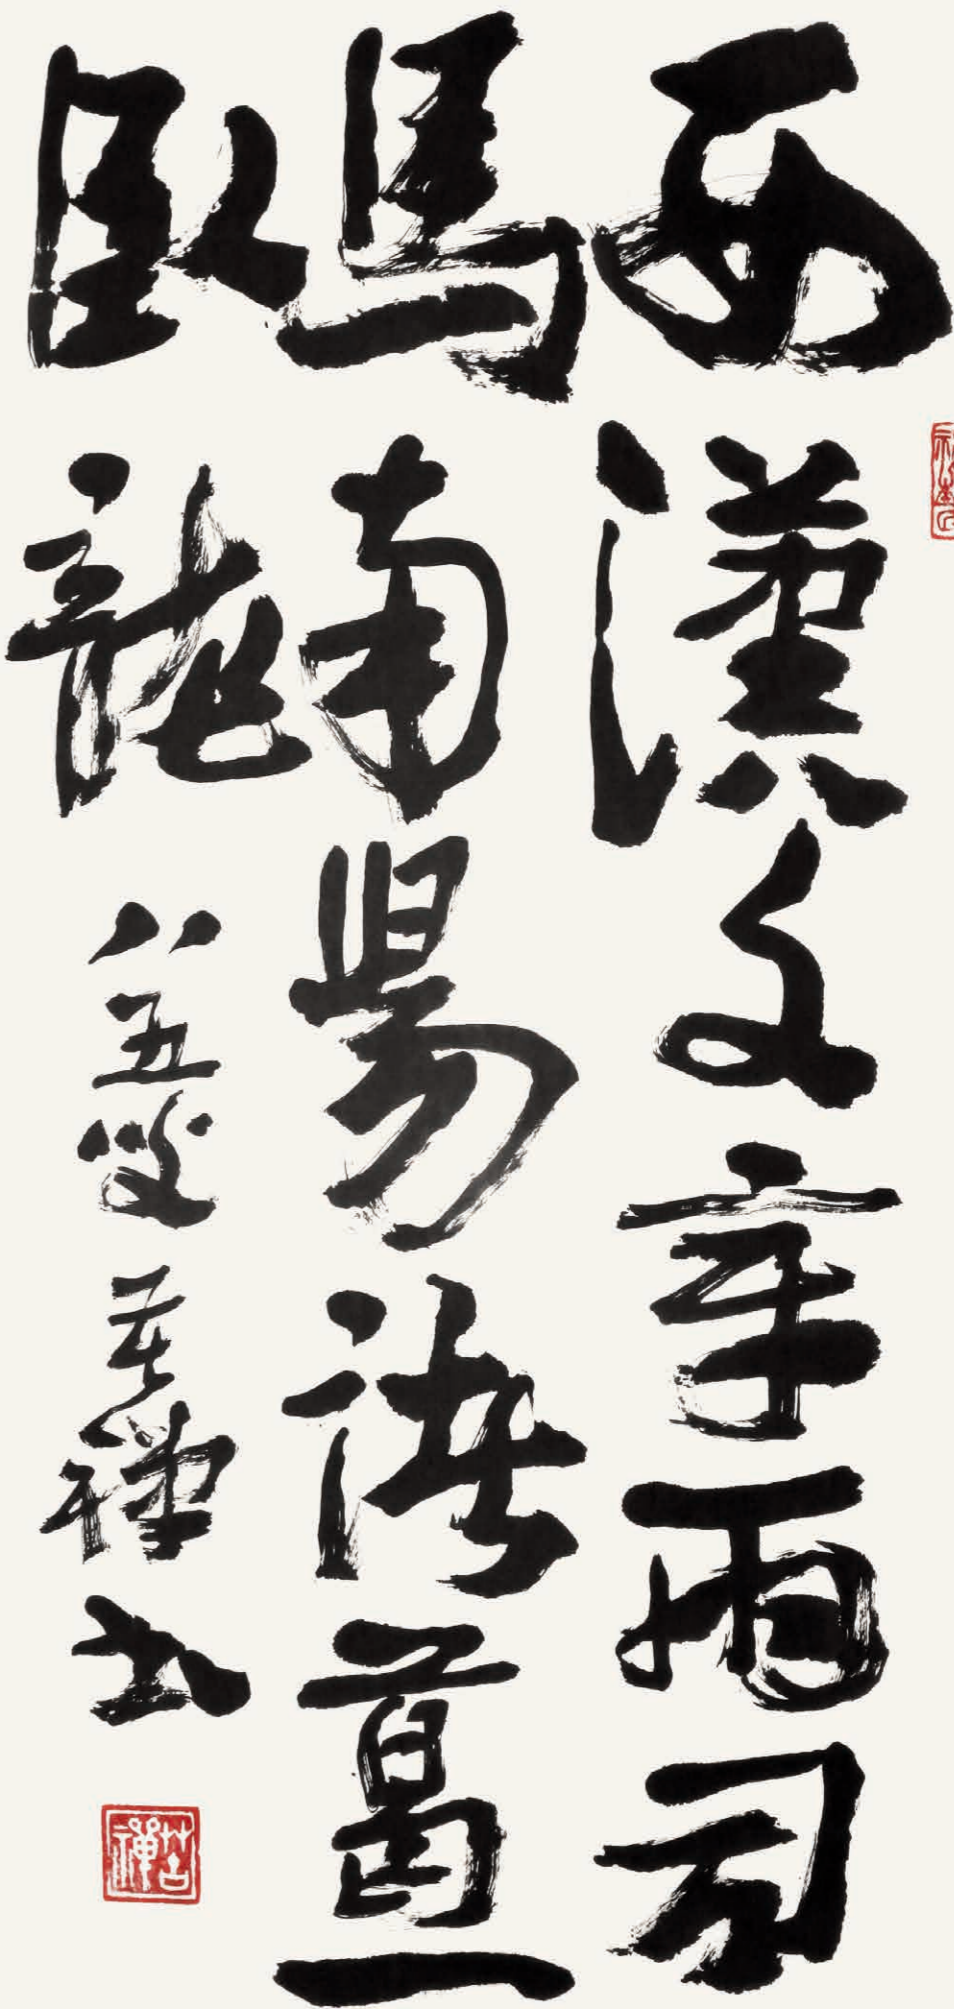 西漢文章兩司
馬南陽諸葛一
臥龍
八五叟苦禪書
苦禪